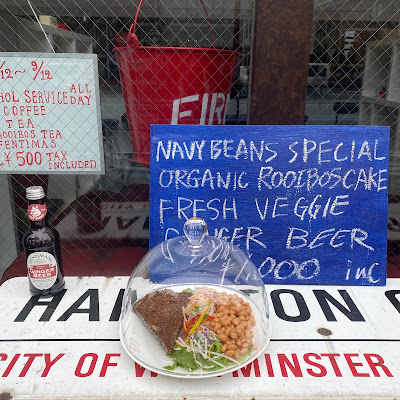 /12~9/12
ALL
HOL SERVICE DAY
COFFEE
TEA
ROOIBOS TEA
FENTIMAS
¥500 TAX INCLUDED
FIR
NAVY BEANS SPECIAL
ORGANIC ROOIBOS CAKE
FRESH VEGGIE
GINGER BEER
¥1,000 inc
GINGER BEER
HA ON
CITY OF W MINSTER